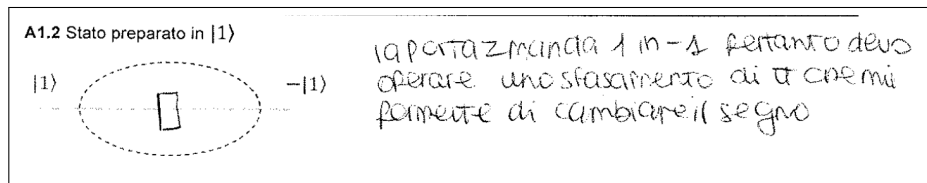 A1.2 Stato preparato in |1⟩
|1⟩
−|1⟩
la porta z manda 1 in -1 pertanto devo
operare uno sfasamento di π che mi
permette di cambiare il segno